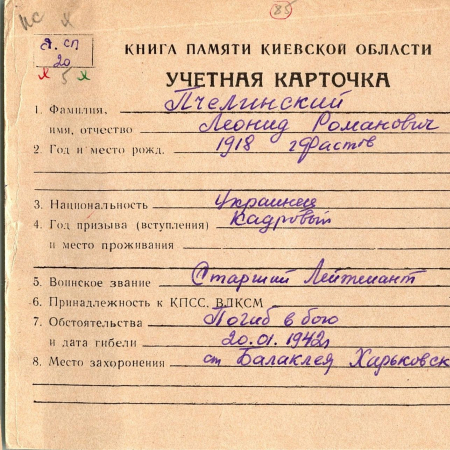 85
ПС
Я. СП
20
5
КНИГА ПАМЯТИ КИЕВСКОЙ ОБЛАСТИ
УЧЕТНАЯ КАРТОЧКА
1. Фамилия, Пчелинский
имя, отчество Леонид Романович
2. Год и место рожд. 1918 г Фастов
3. Национальность Украинец
4. Год призыва (вступления) Кадровый
и место проживания
5. Воинское звание Старший Лейтенант
6. Принадлежность к КПСС, ВЛКСМ
7. Обстоятельства Погиб в бою
и дата гибели 20.01.1942г
8. Место захоронения ст Балаклея Харьковск